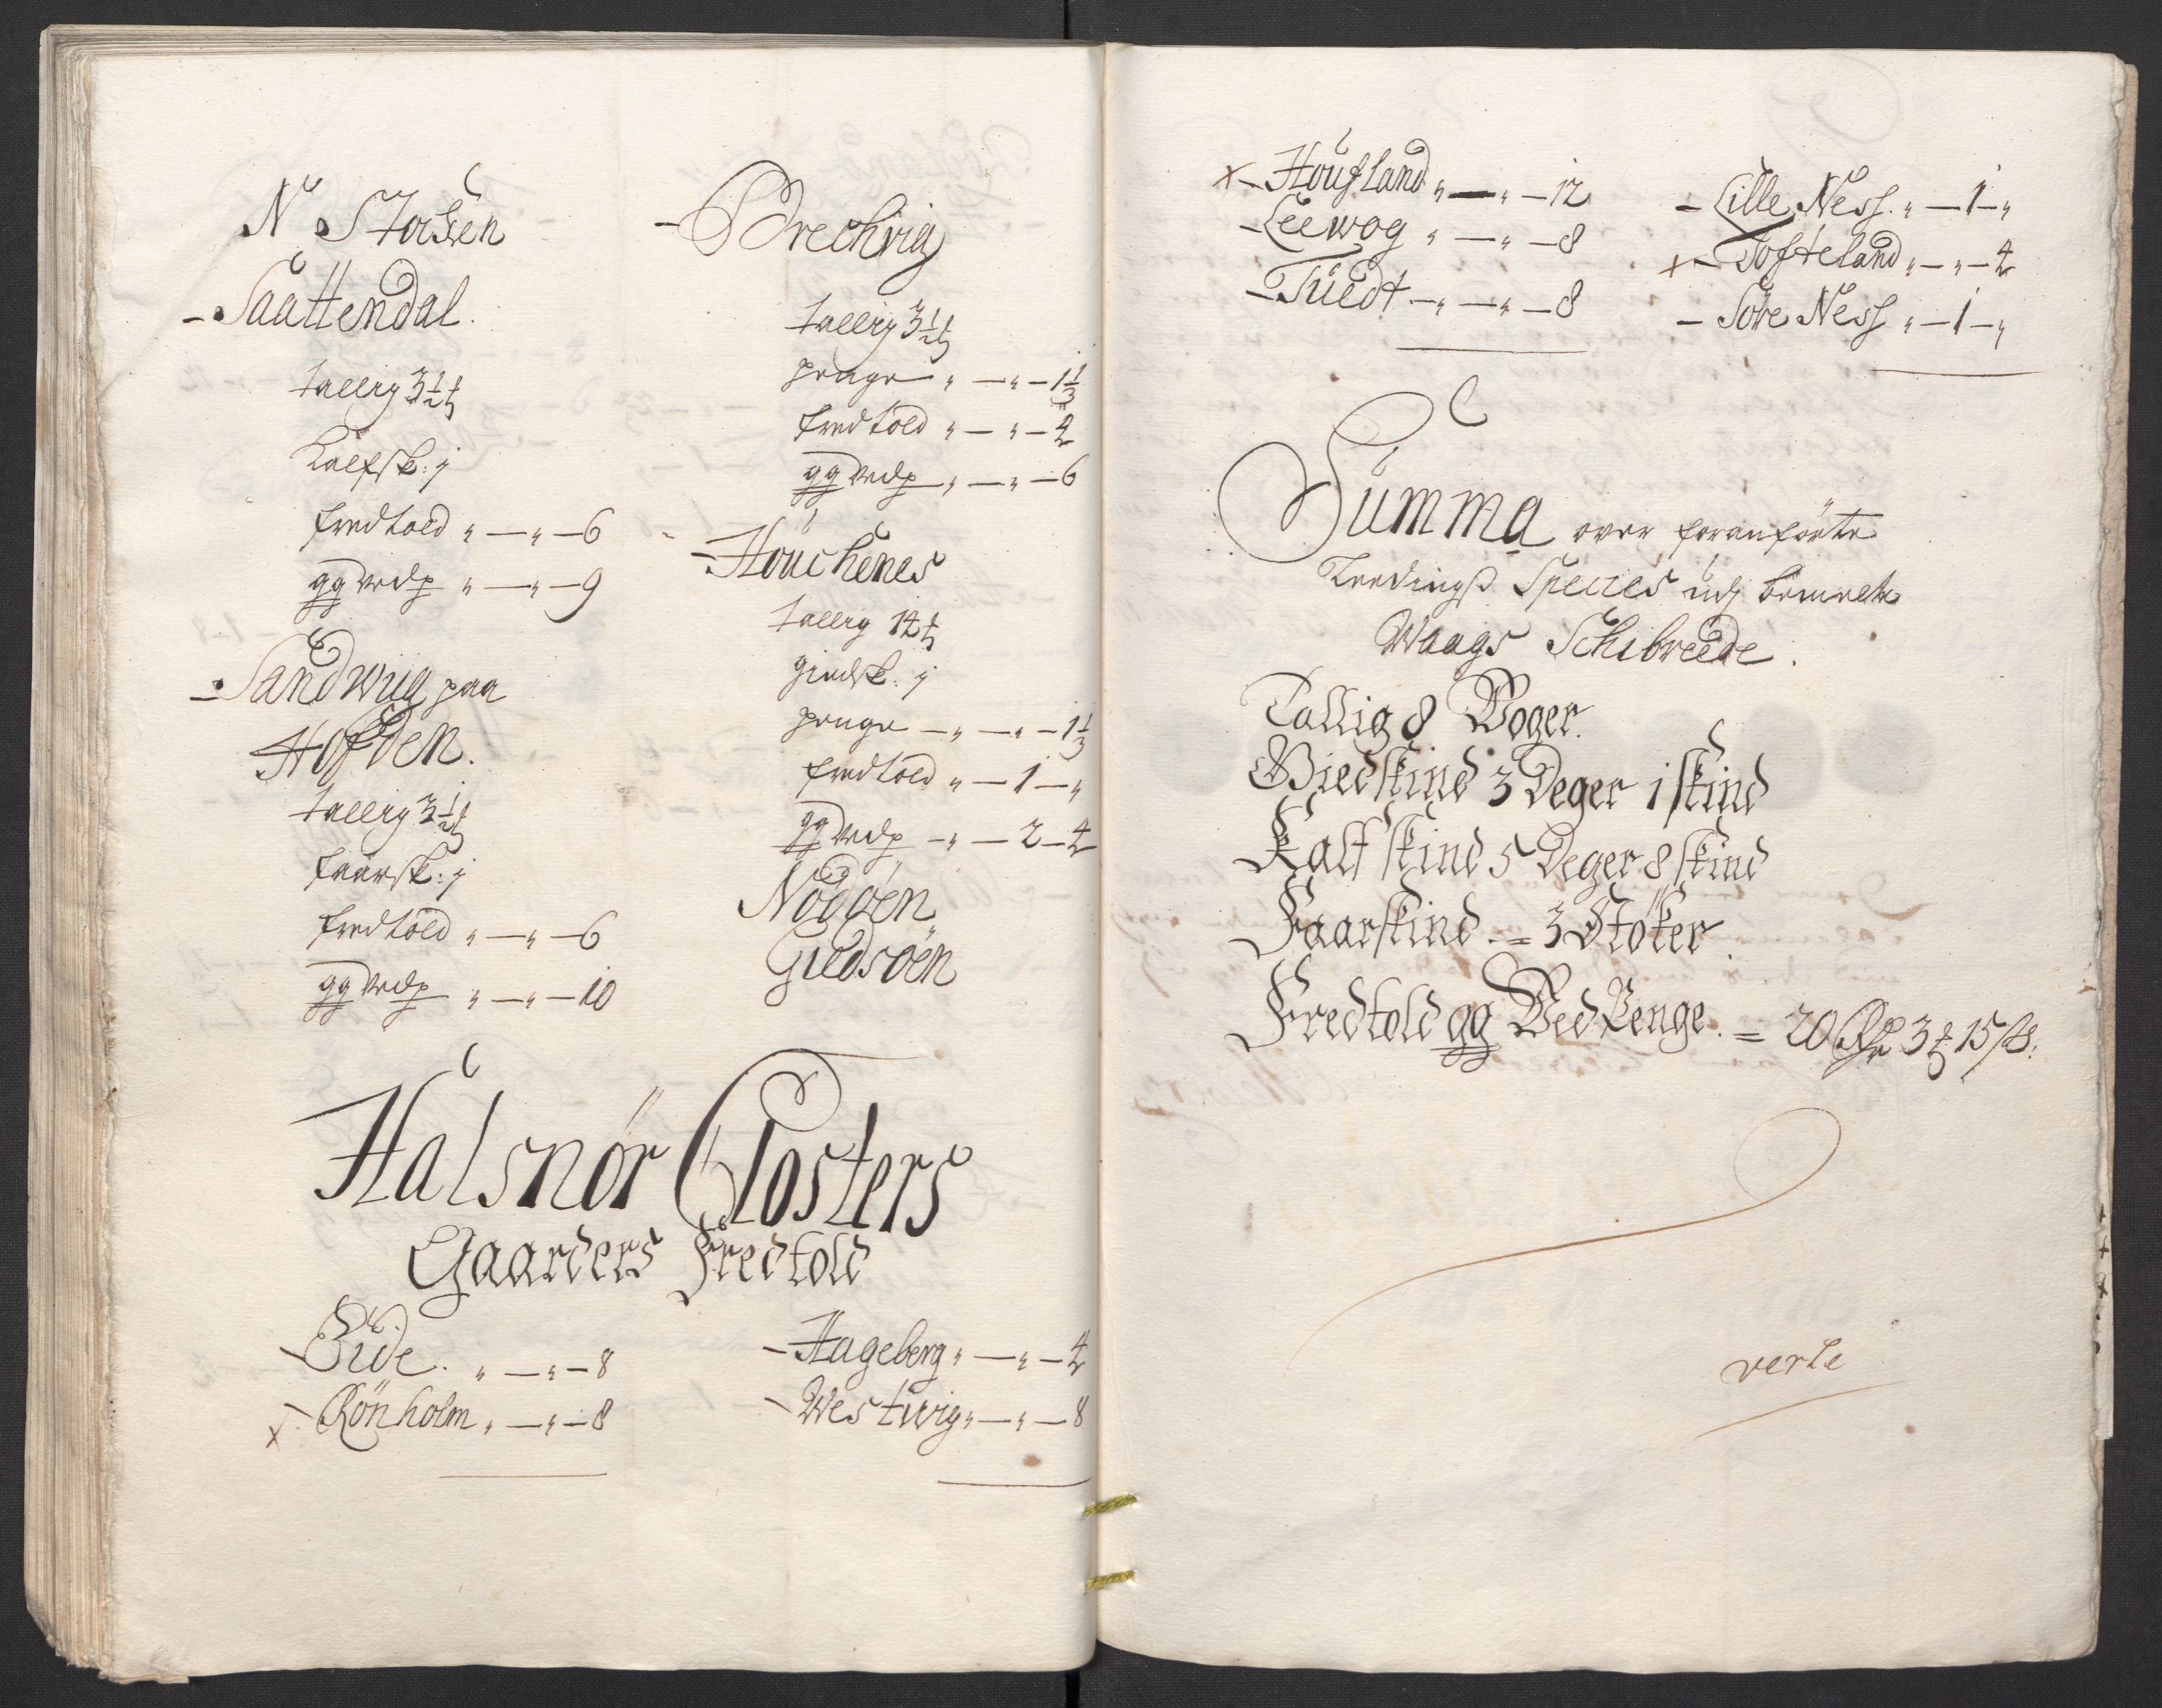 N Storsen
- Saattendal.
tallig 3½ ℔
Kalfsk: j
fredtold " — " — 6
gg vedp " — " — 9
- Sandwiig paa
Hofden.
tallig 3½ ℔
faarsk: j
fredtold " — " — 6
gg vedp " — " — 10
- Brechvig
tallig 3½ ℔
penge " — " — 1⅓
fredtold " — " — 4
gg vedp " — " — 6
- Houchenes
tallig 14 ℔
giedsk: j
penge — " — " — 1⅓
fredtold " — 1 — "
gg vedp — " — 2 — 4
Nodøen
Giedsøen
Halsnör Closters
Gaarders Fredtold
- Eide. " — " — 8
x - Rönholm " — " — 8
- Hageberg " — " — 4
- Westwig " — " — 8
x - Houfland " — " — 12
- Leewog " — " — 8
- Tuedt — " — " — 8
- Lille Ness. " — 1 — "
x - Tofteland " — " — 4
- Sore Ness " — 1 — "
Summa over foranförte
Leedings Species udj bemelte
Waags Schibreede.
Tallig 8 Woger.
Giedskind 3 Deger 1 skind
Kalfskind 5 Deger 8 skind
Faarskind. = 3 Støker.
Fredtold gg Ved Penge. = 20 Rdr 3 ℔ 15 s:
verte